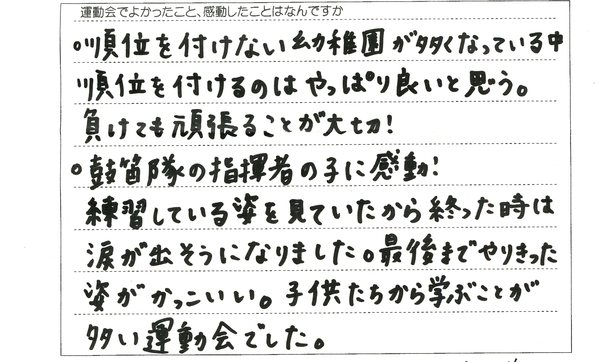 運動会でよかったこと、感動したことはなんですか
○順位を付けない幼稚園が多くなっている中
順位を付けるのはやっぱり良いと思う。
負けても頑張ることが大切!
○鼓笛隊の指揮者の子に感動!
練習している姿を見ていたから終った時は
涙が出そうになりました。最後までやりきった
姿がかっこいい。子供たちから学ぶことが
多い運動会でした。